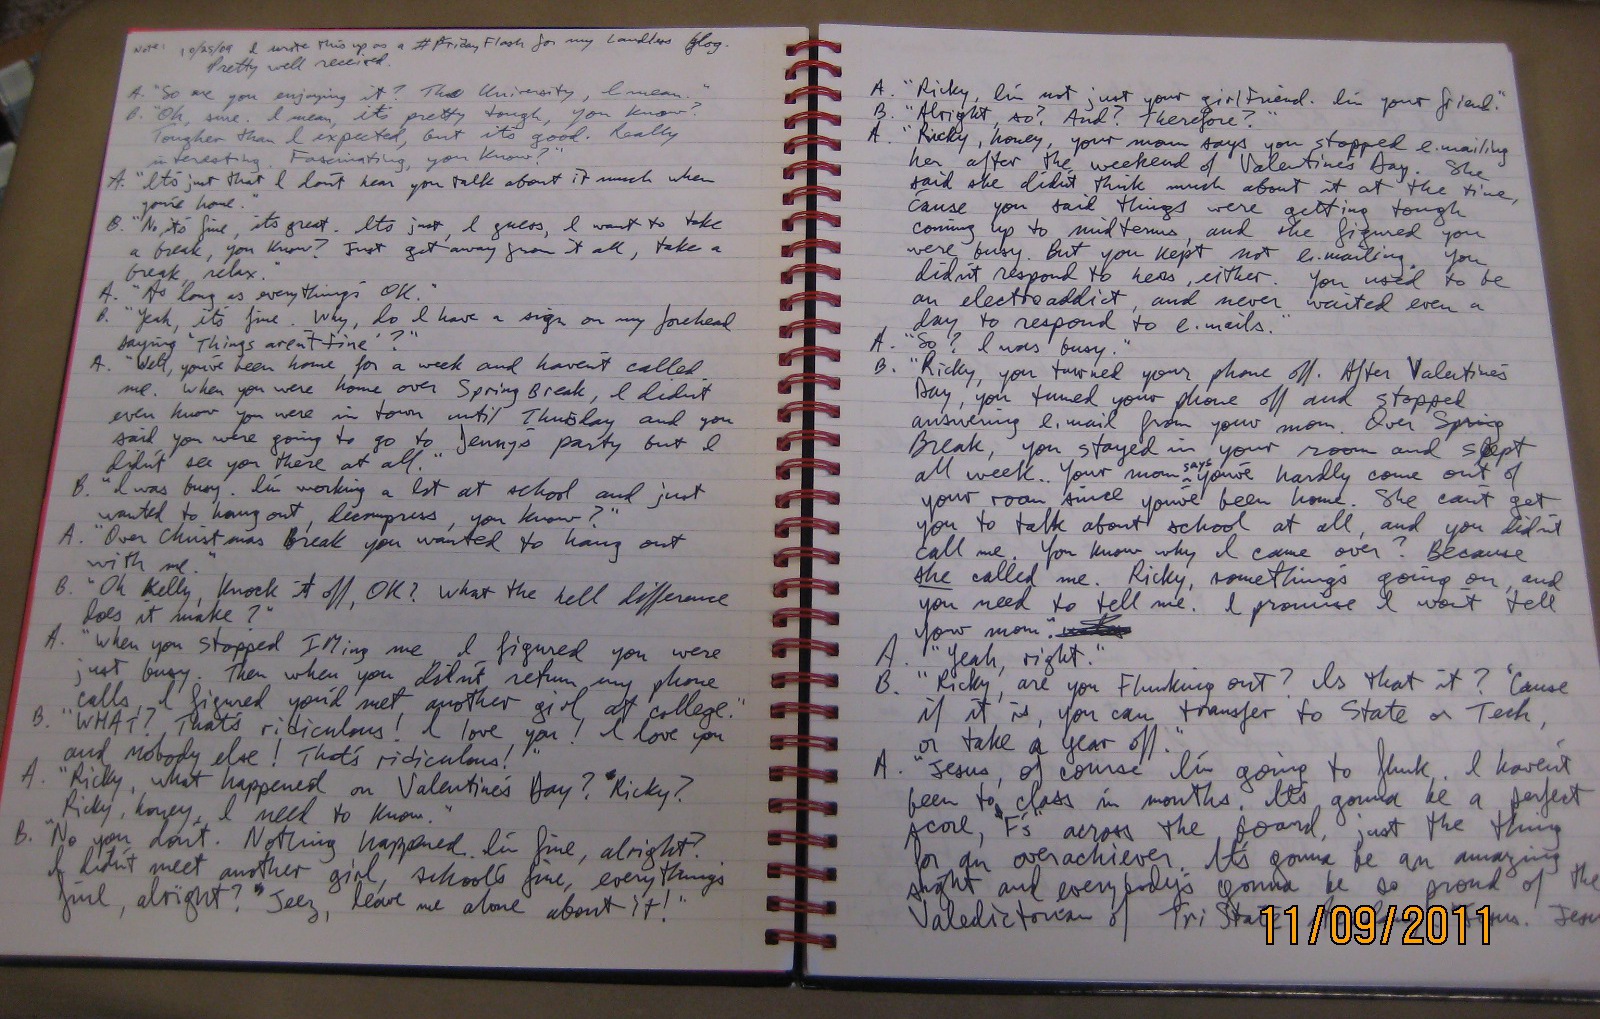 Note: 10/25/09 I wrote this up as a #FridayFlash for my Landless Blog.
Pretty well received.
A. "So are you enjoying it? The University, I mean."
B. "Oh, sure. I mean, it's pretty tough, you know?
Tougher than I expected, but it's good. Really
interesting. Fascinating, you know?"
A. "It's just that I don't hear you talk about it much when
you're home."
B. "No, it's fine, it's great. It's just, I guess, I want to take
a break, you know? Just get away from it all, take a
break, relax."
A. "As long as everything's OK."
B. "Yeah, it's fine. Why, do I have a sign on my forehead
saying 'Things aren't fine'?"
A. "Well, you've been home for a week and haven't called
me. When you were home over Spring Break, I didn't
even know you were in town until Thursday and you
said you were going to go to Jenny's party but I
didn't see you there at all."
B. "I was busy. I'm working a lot at school and just
wanted to hang out, decompress, you know?"
A. "Over Christmas Break you wanted to hang out
with me."
B. "Oh Kelly, knock it off, OK? What the hell difference
does it make?"
A. "When you stopped IMing me I figured you were
just busy. Then when you didn't return my phone
calls, I figured you'd met another girl, at college."
B. "WHAT? That's ridiculous! I love you! I love you
and nobody else! That's ridiculous!"
A. "Ricky, what happened on Valentine's Day? Ricky?
Ricky, honey, I need to know."
B. "No you don't. Nothing happened. I'm fine, alright?
I didn't meet another girl, school's fine, everything's
fine, alright? Jeez, leave me alone about it!"
A. "Ricky, I'm not just your girlfriend. I'm your friend."
B. "Alright, so? And? Therefore?"
A. "Ricky, honey, your mom says you stopped e.mailing
her after the weekend of Valentine's Day. She
said she didn't think much about it at the time,
'cause you said things were getting tough
coming up to midterms and she figured you
were busy. But you kept not e.mailing. You
didn't respond to hers, either. You used to be
an electroaddict, and never waited even a
day to respond to e.mails."
A. "So? I was busy."
B. "Ricky, you turned your phone off. After Valentine's
Day, you turned your phone off and stopped
answering e.mail from your mom. Over Spring
Break, you stayed in your room and slept
all week. Your mom says you've hardly come out of
your room since you've been home. She can't get
you to talk about school at all, and you didn't
call me. You know why I came over? Because
she called me. Ricky, something's going on, and
you need to tell me. I promise I won't tell
your mom."
A. "Yeah, right."
B. "Ricky, are you Flunking out? Is that it? 'Cause
if it is, you can transfer to State or Tech,
or take a year off."
A. "Jesus, of course I'm going to flunk. I haven't
been to class in months. It's gonna be a perfect
score, "F's" across the board, just the thing
for an overachiever. It's gonna be an amazing
sight and everybody's gonna be so proud of the
Valedictorian of Tri State
11/09/2011